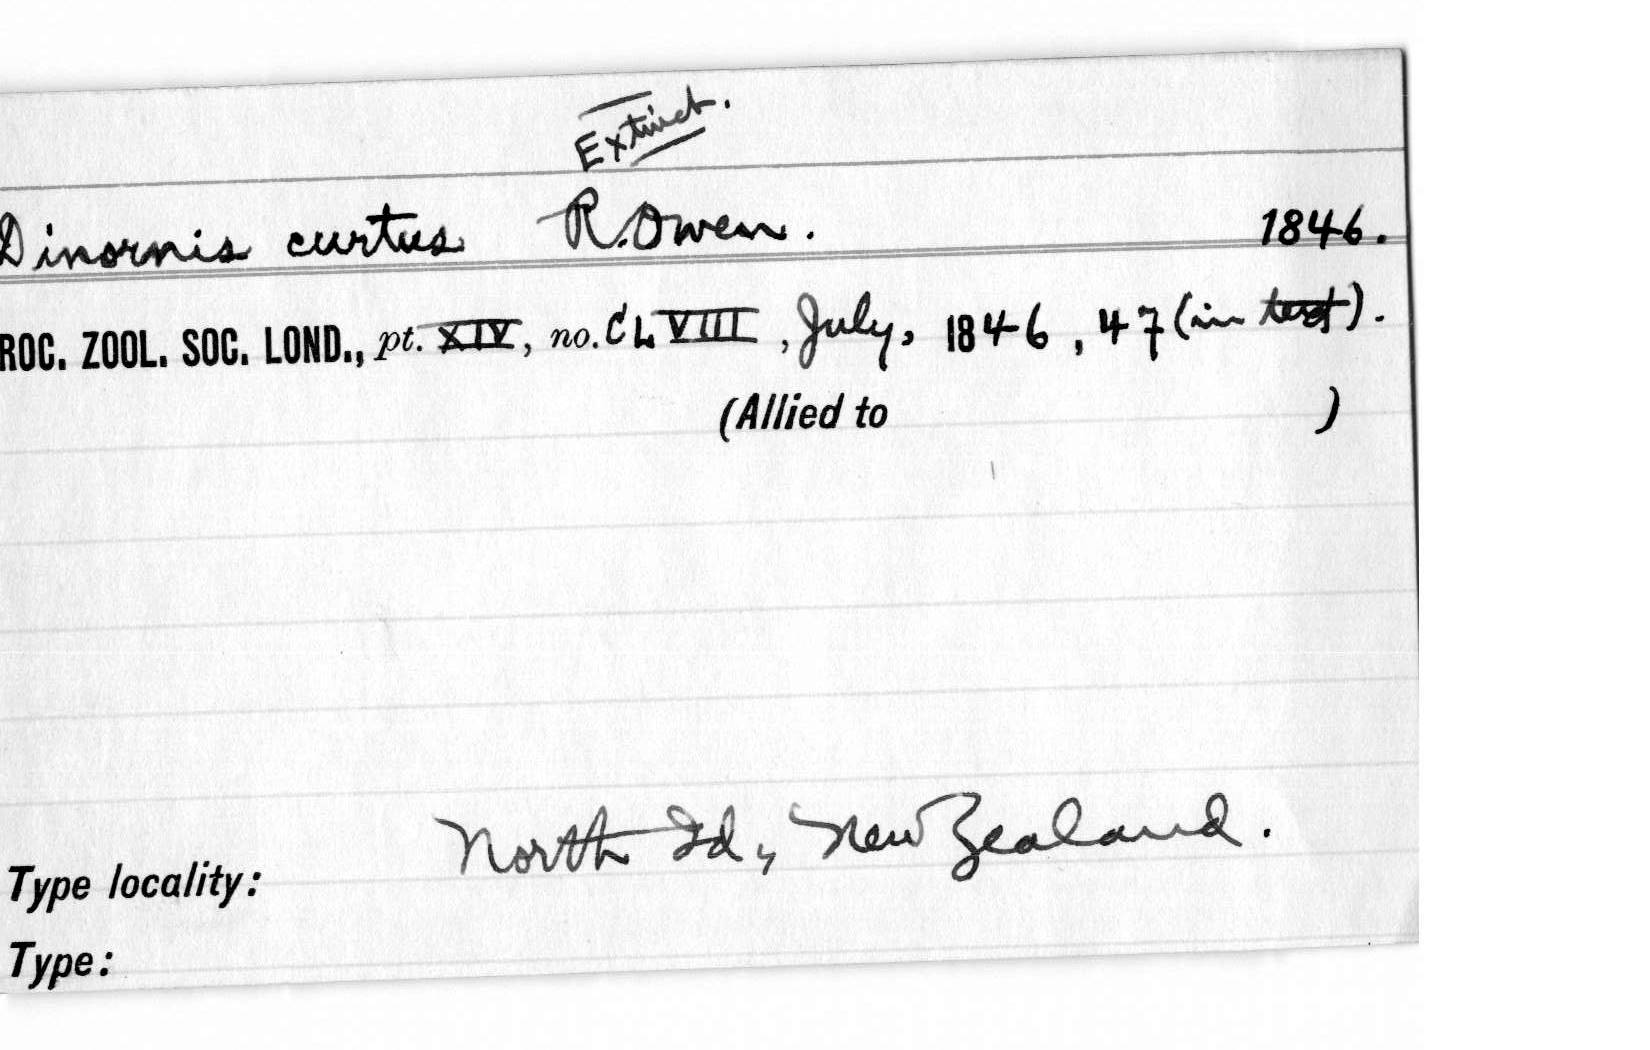 Extinct.
Dinornis curtus R. Owen. 1846.
ROC. ZOOL. SOC. LOND., pt. XIV, no. CLVIII, July, 1846, 47 (in text).
(Allied to )
Type locality: North Id, New Zealand.
Type: